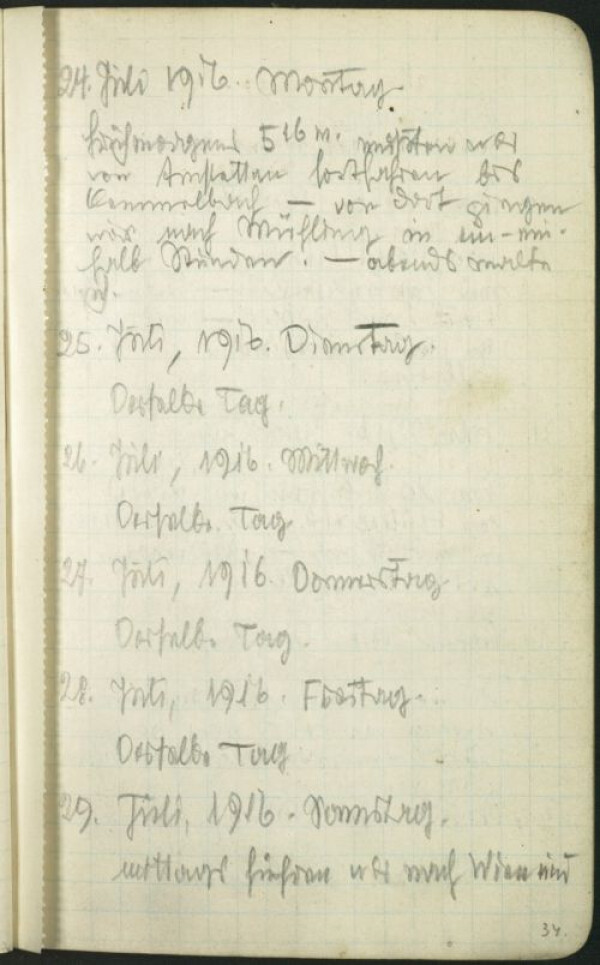 24. Juli 1916. Montag.
frühmorgens 5 16 m. mußten wir
von Amstetten fortfahren bis
Kemmelbach — von dort gingen
wir nach Mühling in ein-ein-
halb Stunden. — abends malte
ich.
25. Juli, 1916. Dienstag.
Derselbe Tag.
26. Juli, 1916. Mittwoch.
Derselbe Tag
27. Juli, 1916. Donnerstag
Derselbe Tag.
28. Juli, 1916. Freitag.
Derselbe Tag
29. Juli, 1916. Samstag.
mittags fuhren wir nach Wien und
34.